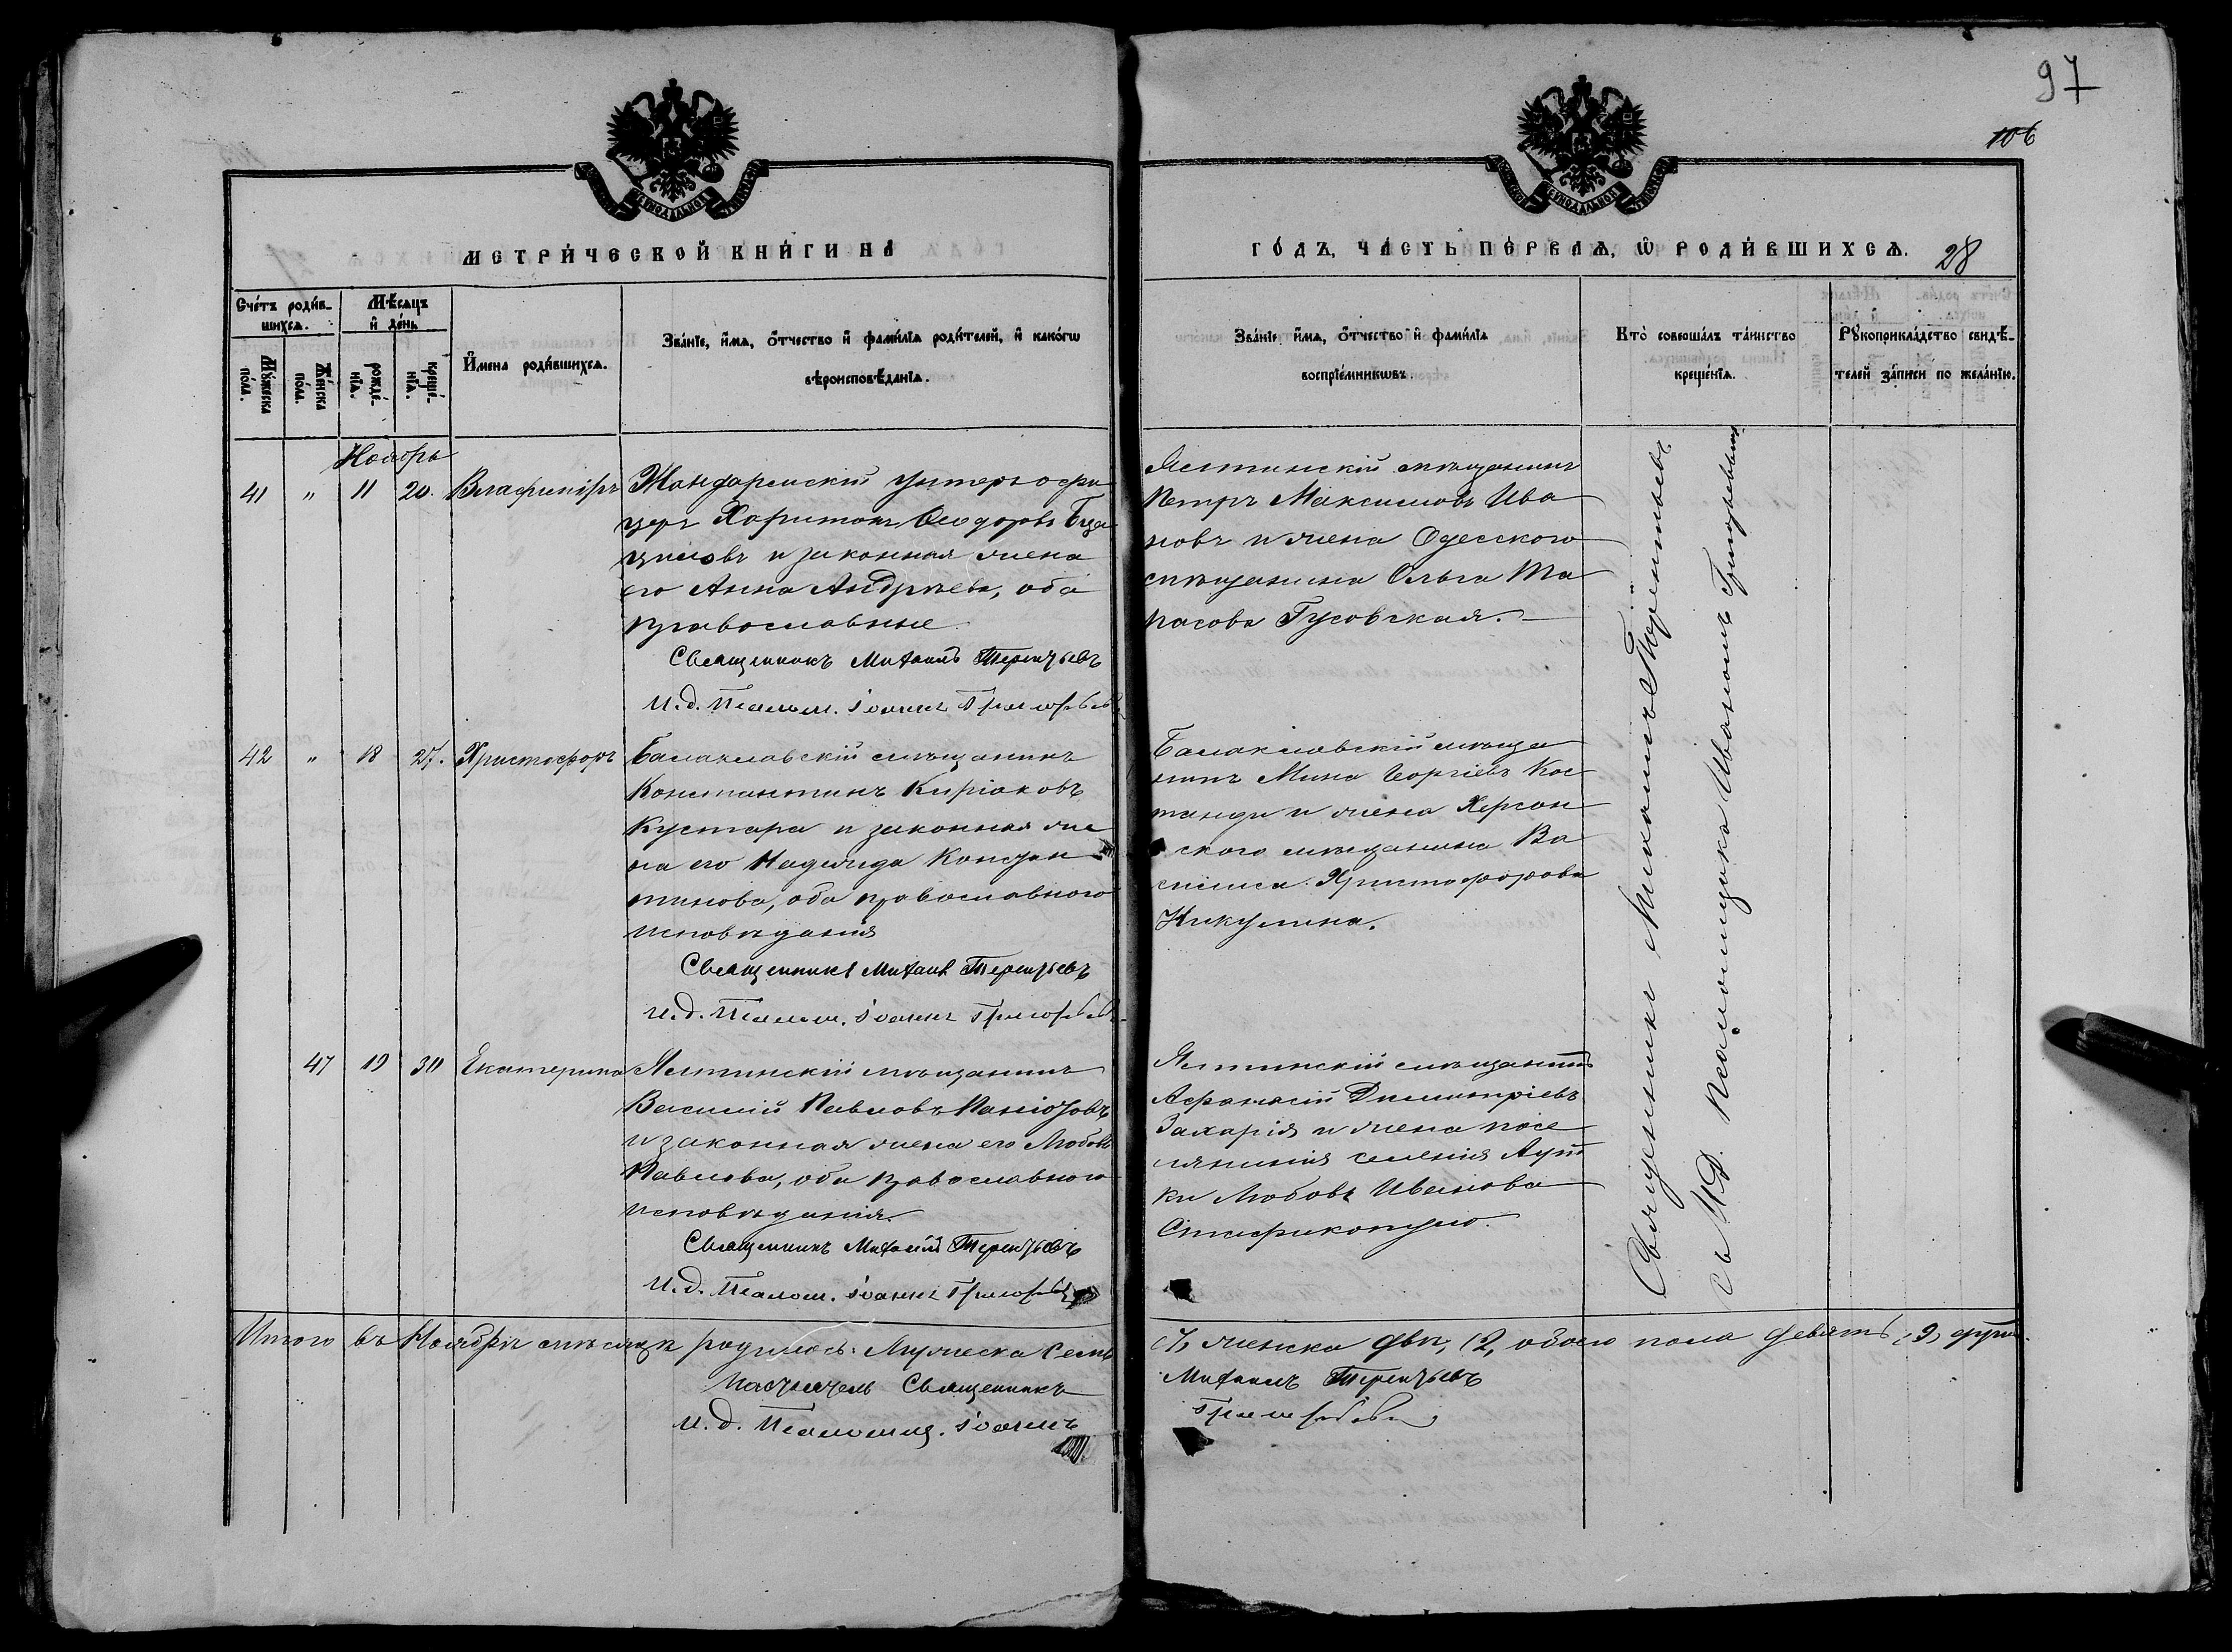 97
106
МЕТРИ́ЧЕСКОЙ КНИ́ГИ НА
ГО́ДЪ, ЧА́СТЬ ПЕ́РВАѦ, Ѡ РОДИ́ВШИХСѦ. 28
Сче́тъ роди́в-
шихсѧ.
Мѣ́сѧцъ
и҆ де́нь
Мꙋ́жеска по́ла.
Же́нска по́ла.
рожде́-
нїѧ.
креще́-
нїѧ.
И҆мена̀ роди́вшихсѧ.
Зва́нїе, и҆́мѧ, ѻ҆́тчество и҆ фами́лїѧ роди́телей, и҆ како́гѡ
вѣроисповѣ́данїѧ.
Зва́нїе, и҆́мѧ, ѻ҆́тчество и҆ фами́лїѧ
воспрїе́мникѡвъ.
Кто̀ соверша́лъ та́инство
креще́нїѧ.
Рꙋкоприкла́дство свидѣ́-
телей за́писи по жела́нїю.
Ноябрь
41 " 11 20. Владиміръ
Жандармскій унтеръ офи
церъ Харитонъ Ѳеодоровъ
и законная жена
его Анна Андреева, оба
православные
Священникъ Михаилъ Терентьевъ
И. д. Псалом. Іоаннъ Григорьевъ
Ялтинскій мѣщанинъ
Петръ Максимовъ Ива
новъ и жена Одесского
мѣщанина Ольга Та
расова Гусовская.
42 " 18 27. Христофоръ
Балаклавскій мѣщанинъ
Константинъ Киріаковъ
Кустара и законная же
на его Надежда Констан
тинова, оба православного
исповѣданія
Священникъ Михаилъ Терентьевъ
и. д. Псалом. Іоаннъ Григорьевъ
Балаклавскій мѣща
нинъ Мина Георгіевъ Кос
танди и жена Херсон
ского мѣщанина Ва
силиса Христофорова
Никулина.
47 19 30 Екатерина
Ялтинскій мѣщанинъ
Василій Павловъ
и законная жена его Любовь
Павлова, оба православного
исповѣданія.
Священникъ Михаилъ Терентьевъ
И. д. Псалом. Іоаннъ Григорьевъ
Ялтинскій мѣщанинъ
Афанасій Димитріевъ
Захарія и жена посе
лянина селенія Аут
ки Любовь Иванова
Стафикопуло.
Священникъ Михаилъ Терентьевъ
съ И. Д. Псаломщика Иваномъ Григорьевымъ
Итого въ Ноябрѣ мѣсяцѣ родилось: Мужеска семь
(7, женска двѣ, (2, обоего пола девять (9) душъ.
Настоятель Священникъ
Михаилъ Терентьевъ
И. д. Псаломщ. Іоаннъ
Григорьевъ